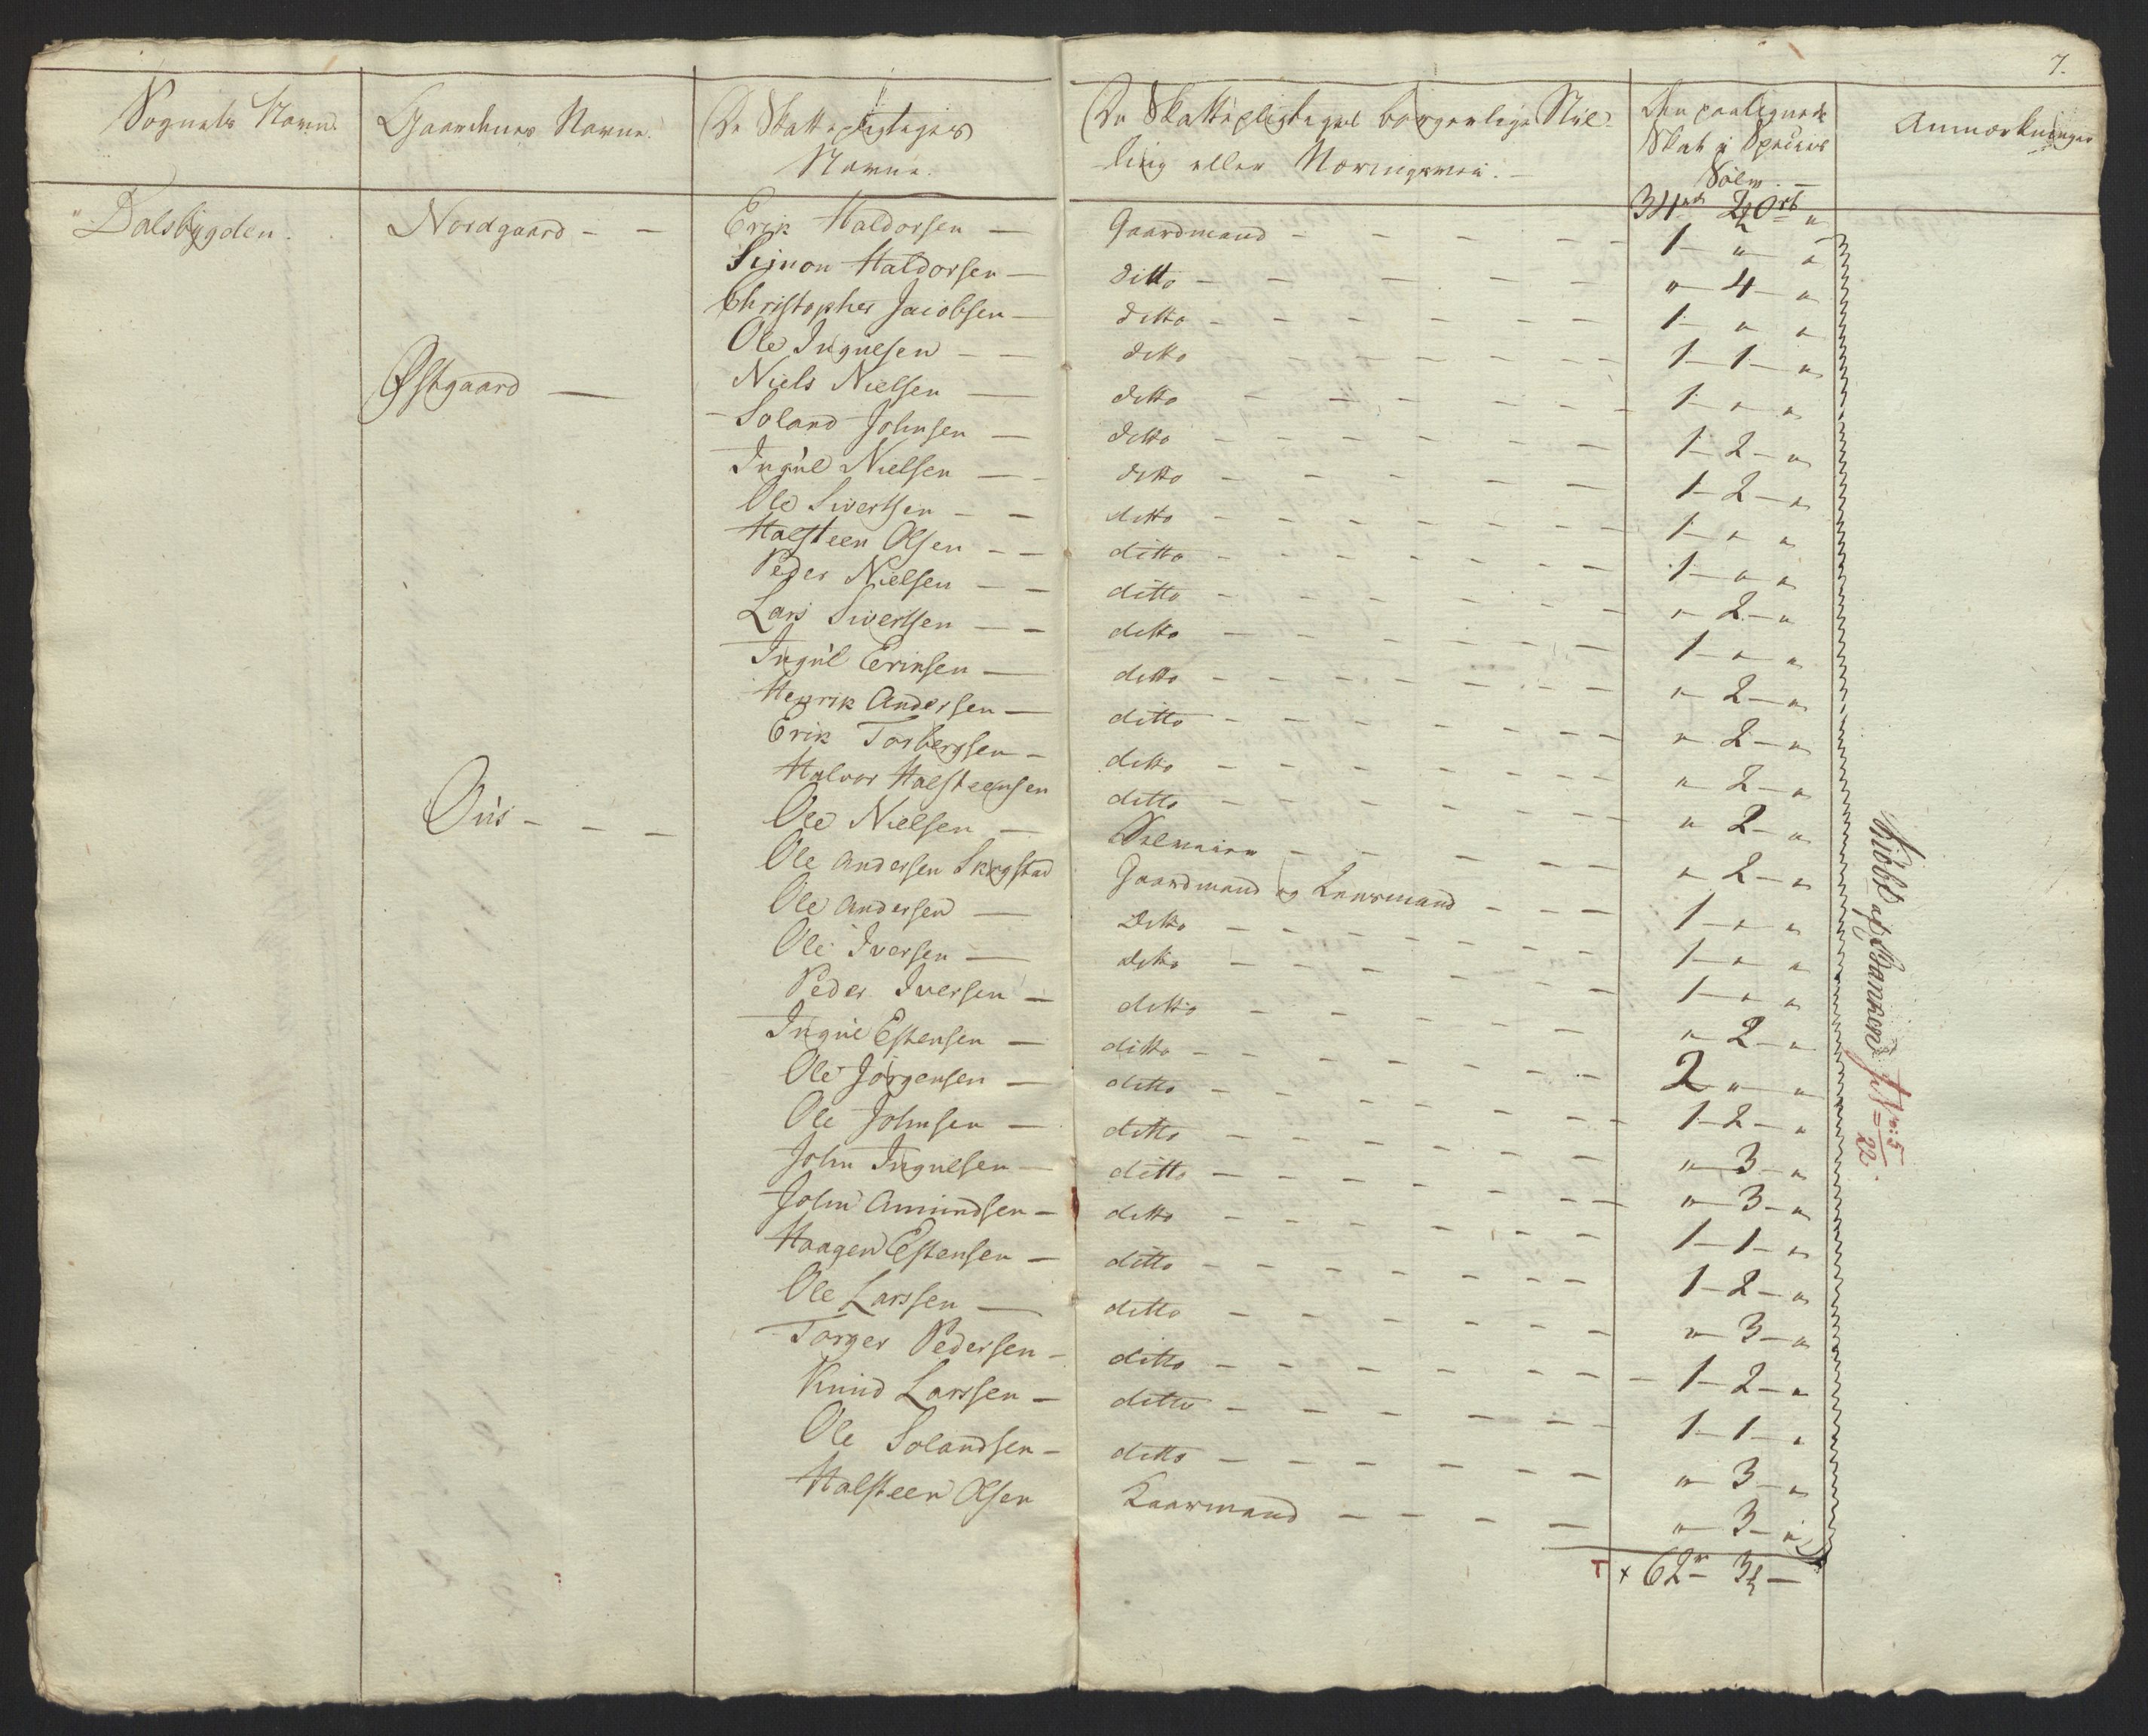 7.
Sognets Navn. Gaardenes Navne. De Skattepligtiges Navne. De Skattepligtiges borgerlige Stilling eller Næringsvei. Den paalignede Skat i Species Sølv. Anmærkninger
34 2½ Ort "
Dalsbygden. Nordgaard - - Erik Haldorsen — Gaardmand - - - - - 1 - " - "
Simon Haldorsen — ditto - - - - - " - 4 - "
Christopher Jacobsen — ditto - - - - - 1 - " "
Ole Ingulsen - - ditto - - - - - 1 - 1 - "
Østgaard — Niels Nielsen — ditto - - - - - 1 - " "
Soland Johnsen — ditto - - - - - 1 - 2 - "
Ingul Nielsen — ditto - - - - - 1 - 2 - "
Ole Sivertsen - - ditto - - - - - 1 - " "
Halsteen Olsen - - ditto - - - - - 1 - " "
Peder Nielsen - - ditto - - - - - " - 2 - "
Lars Sivertsen - - ditto - - - - - 1 - " "
Ingul Eriksen — ditto - - - - - " - 2 - "
Henrik Andersen — ditto - - - - - " - 2 - "
Erik Torbergsen - ditto - - - - - " - 2 - "
Halvor Halsteensen ditto - - - - - " 2 - "
Ous - - - Ole Nielsen — - - - - " - 2 - "
Ole Andersen Skogstad Gaardmand og Lensmand - - - 1 - " "
Ole Andersen — Ditto - - - - - 1 - " "
Ole Iversen — ditto - - - - - 1 - " "
Peder Iversen — ditto - - - - - " - 2 - "
Ingul Estensen — ditto - - - - - 2 " "
Ole Jørgensen — ditto - - - - - 1 - 2 - "
Ole Johnsen — ditto - - - - - " - 3 - "
John Ingulsen — ditto - - - - - " - 3 - "
John Amundsen - ditto - - - - - 1 - 1 - "
Haagen Estensen - ditto - - - - - 1 - 2 - "
Ole Larssen — ditto - - - - - " - 3 - "
Torger Pedersen - ditto - - - - - 1 - 2 - "
Knud Larssen - ditto - - - - - 1 - 1 - "
Ole Solandsen - ditto - - - - - " - 3 - "
Halsteen Olsen Kaarmand - - - - " - 3 - "
T + 62 - 3½ -
Kiøbt af Banken N: 5/22.